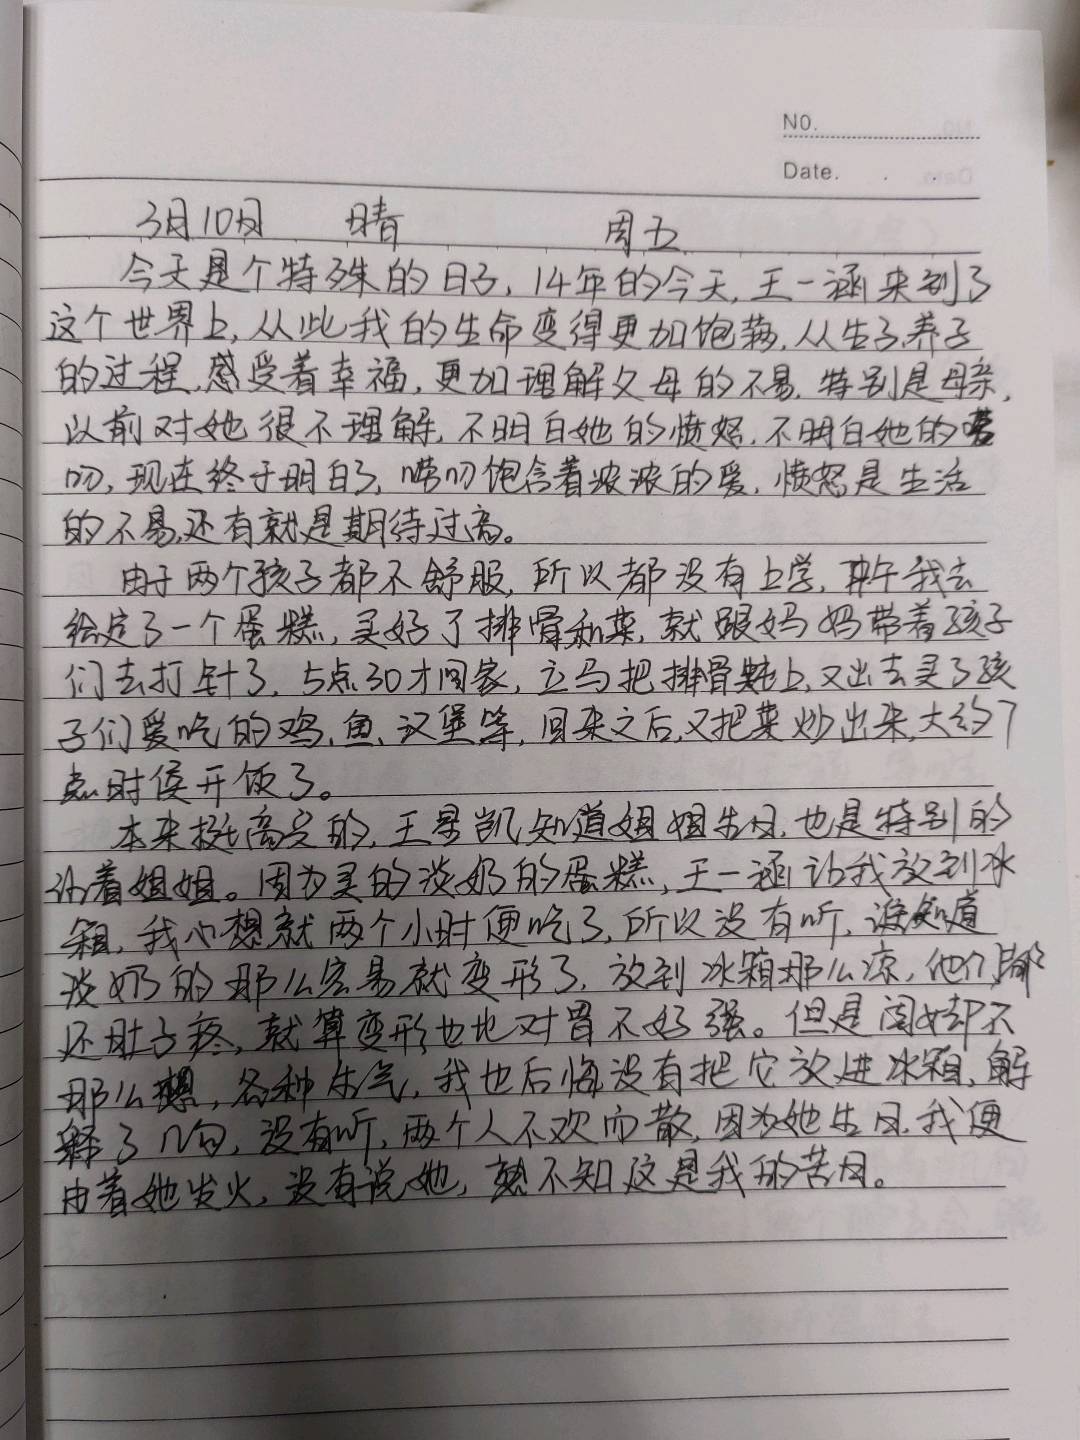 NO.
Date.
3月10日 晴 周五
今天是个特殊的日子,14年的今天,王一涵来到了
这个世界上,从此我的生命变得更加饱满,从生子养子
的过程,感受着幸福,更加理解父母的不易,特别是母亲,
以前对她很不理解,不明白她的愤怒,不明白她的唠
叨,现在终于明白了,唠叨饱含着浓浓的爱,愤怒是生活
的不易,还有就是期待过高。
由于两个孩子都不舒服,所以都没有上学,我去
给定了一个蛋糕,买好了排骨和菜,就跟妈妈带着孩子
们去打针了,5点30才回家,立马把排骨炖上,又出去买了孩
子们爱吃的鸡、鱼、汉堡等,回来之后,又把菜炒出来,大约7
点时候开饭了。
本来挺高兴的,王昱凯知道姐姐生日,也是特别的
让着姐姐。因为买的淡奶的蛋糕,王一涵让我放到冰
箱,我心想就两个小时便吃了,所以没有听,谁知道
淡奶的那么容易就变形了,放到冰箱那么凉,他们都
还肚子疼,就算变形也比对胃不好强。但是闺女却不
那么想,各种生气,我也后悔没有把它放进冰箱,解
释了几句,没有听,两个人不欢而散,因为她生日,我便
由着她发火,没有说她,孰不知这是我的苦日。